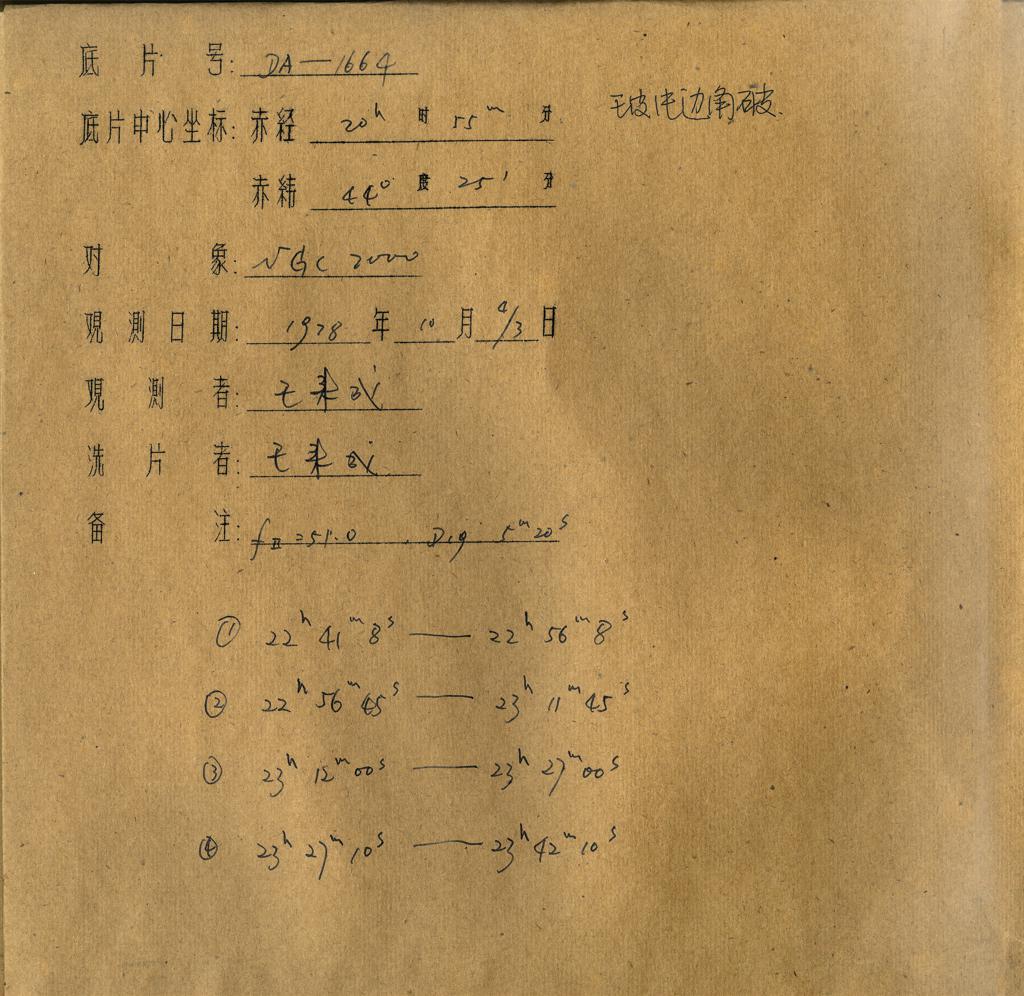 底片号: DA—1664
玻片边角破.
底片中心坐标: 赤经 20ʰ 时 55ᵐ 分
赤纬 44° 度 25′ 分
对象: NGC 7000
观测日期: 1978 年 10 月 4/3 日
观测者: 王来成
洗片者: 王来成
备注: fⅡ=51.0 . Dig 5ᵐ20ˢ
① 22ʰ 41ᵐ 8ˢ —— 22ʰ 56ᵐ 8ˢ
② 22ʰ 56ᵐ 45ˢ —— 23ʰ 11ᵐ 45ˢ
③ 23ʰ 12ᵐ 00ˢ —— 23ʰ 27ᵐ 00ˢ
④ 23ʰ 27ᵐ 10ˢ —— 23ʰ 42ᵐ 10ˢ